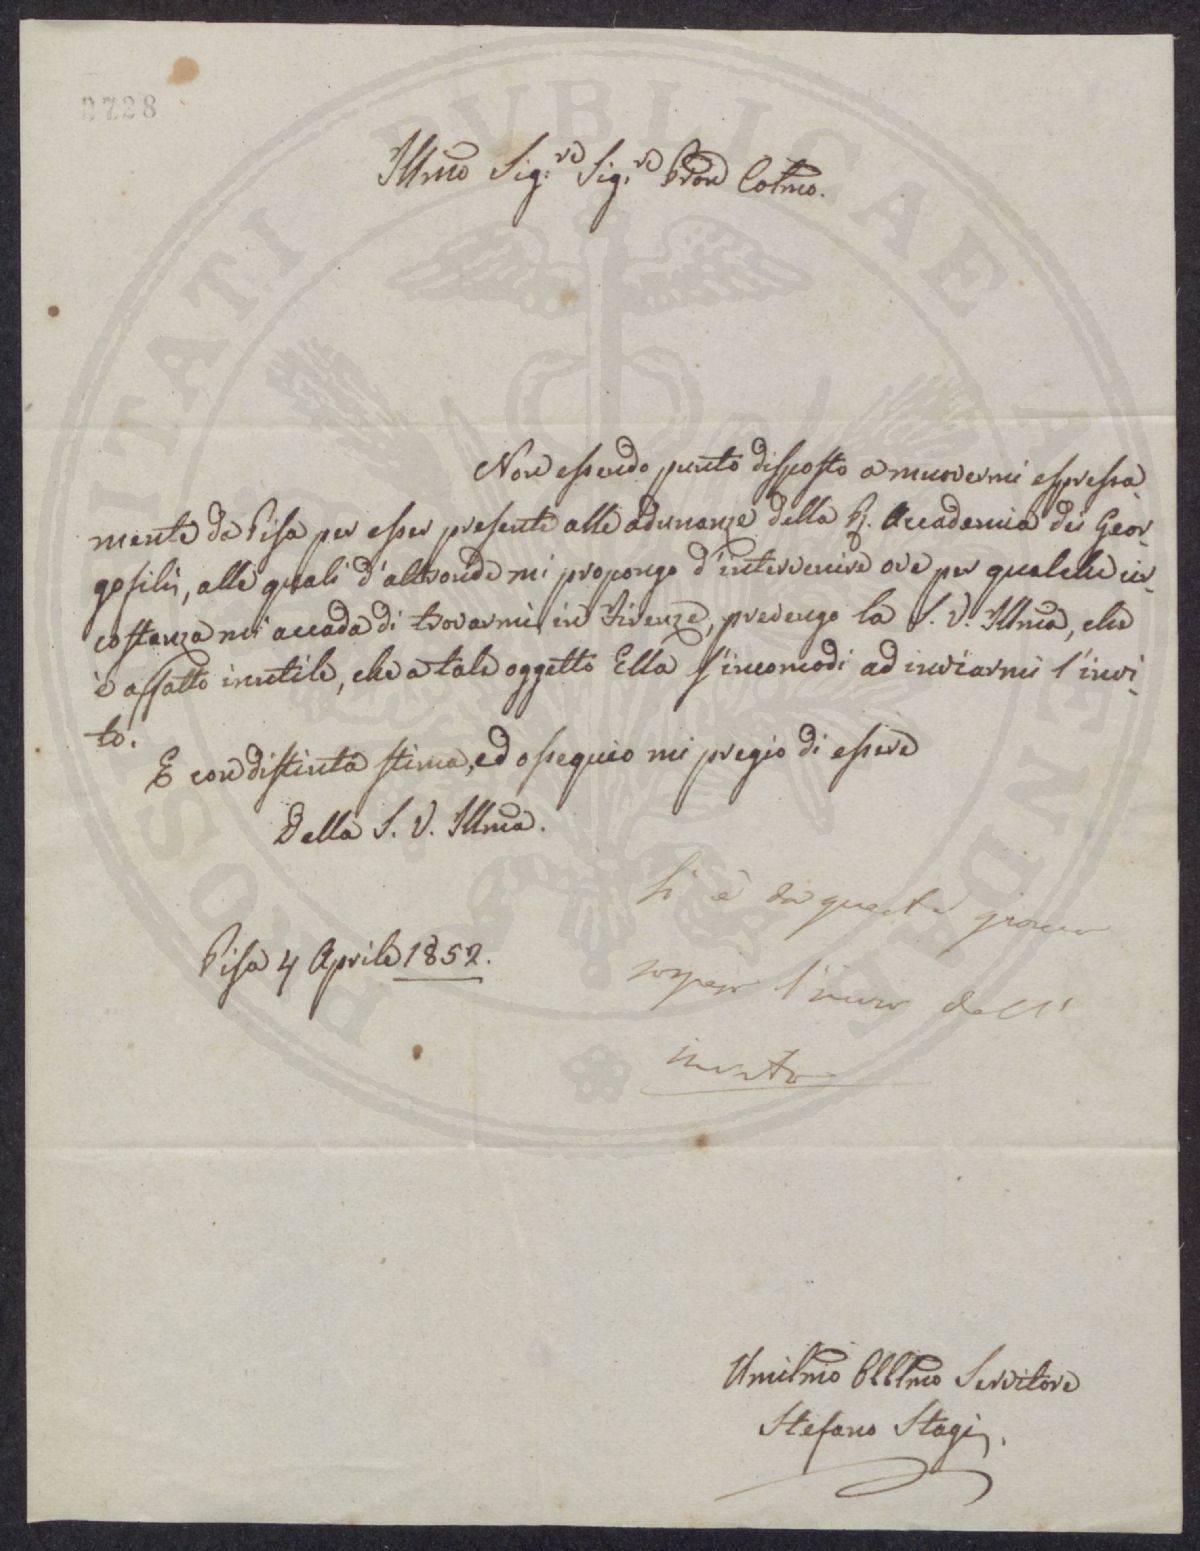 2728
PROSPERITATI PUBLICAE AUGENDAE
Illmo Sig.re Sig.re Pron Colmo.
Non essendo punto disposto a muovermi espressa-
mente da Pisa per esser presente alle adunanze della R. Accademia dei Geor-
gofili, alle quali d'altronde mi propongo d'intervenire ove per qualche cir-
costanza mi accada di trovarmi in Firenze, prevengo la S. V. Illma, che
è affatto inutile, che a tale oggetto Ella s'incomodi ad inviarmi l'invi-
to.
E con distinta stima, ed ossequio mi pregio di essere
Della S. V. Illma.
Si è da questo giorno
sospeso l'invio dell'
invito
Pisa 4 Aprile 1852.
Umilmo Obblmo Servitore
Stefano Stagi.